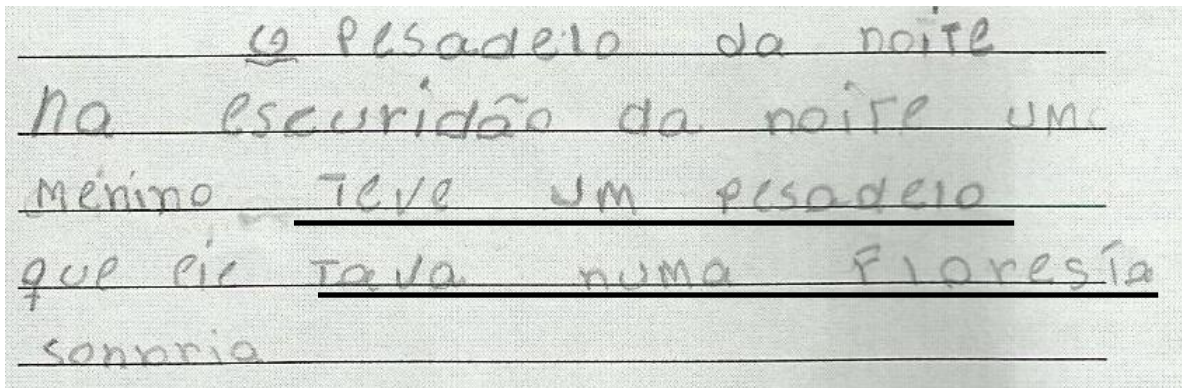 O Pesadelo da noite
na escuridão da noite um
menino teve um pesadelo
que ele tava numa Floresta
sonbria